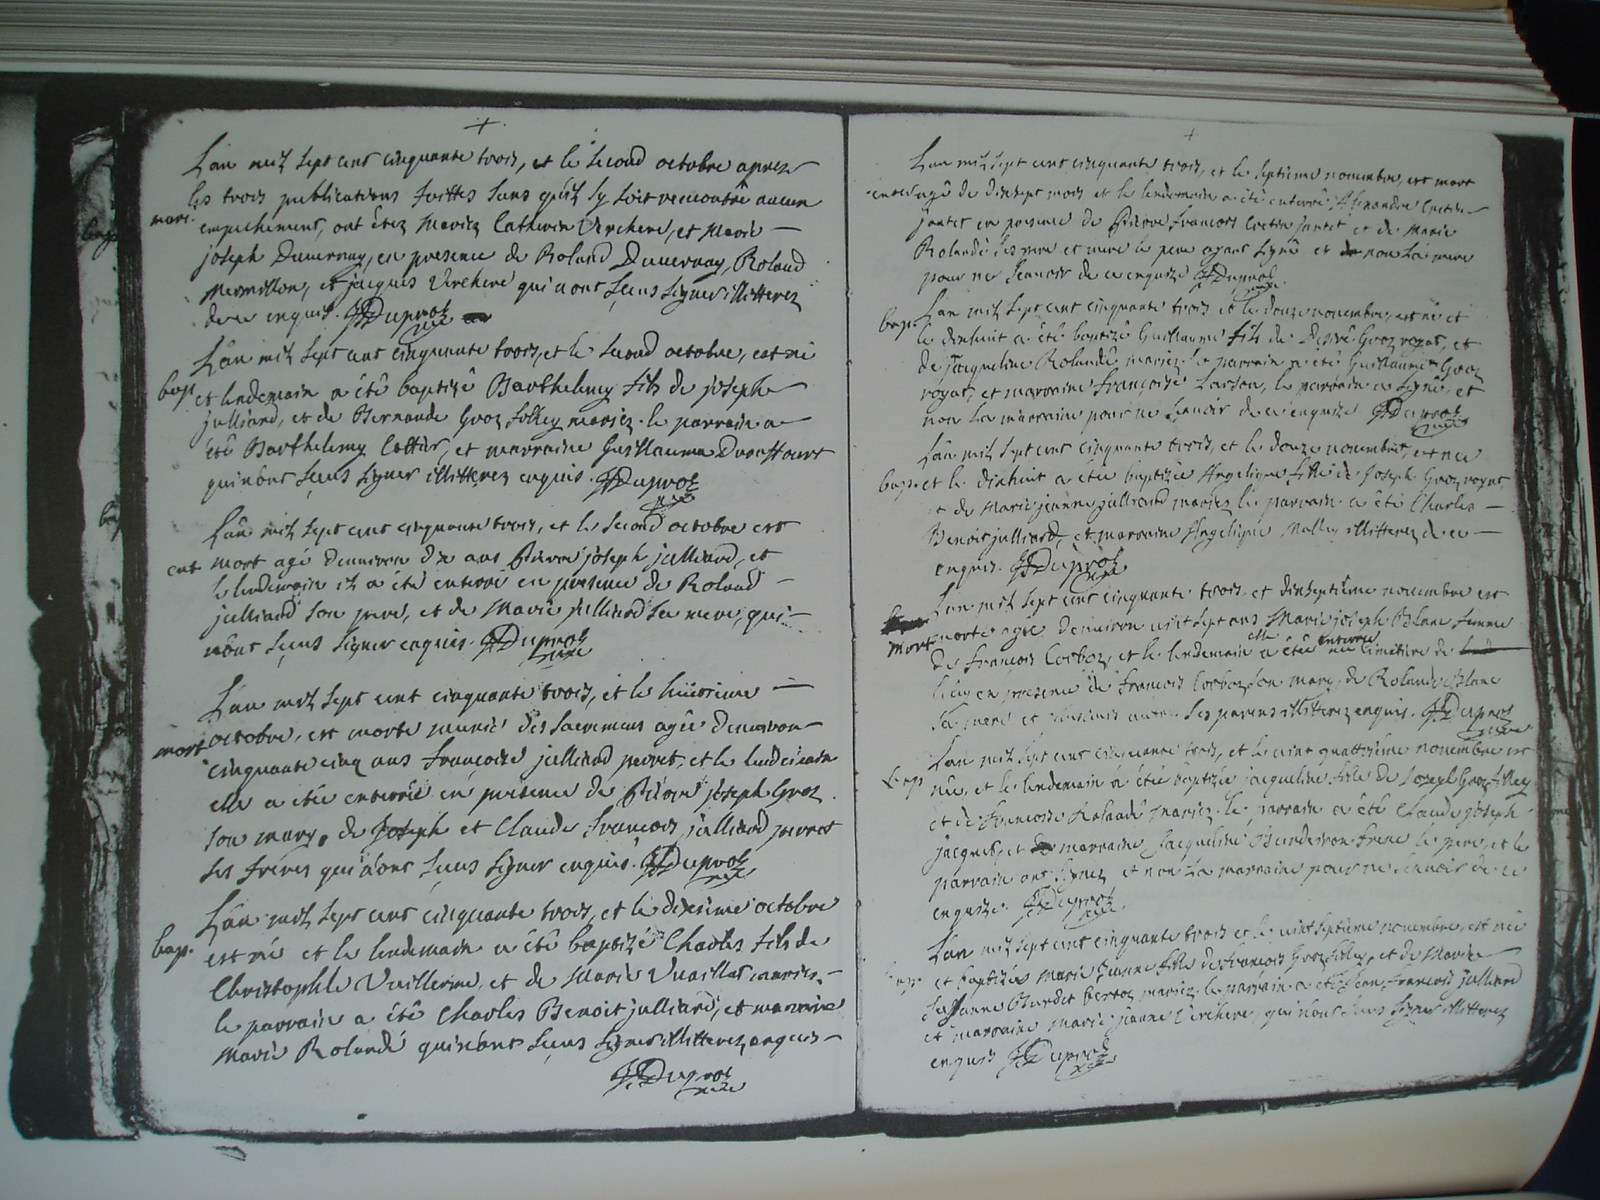 L'an mil sept cent cinquante trois, et le second octobre apres
les trois publications faittes sans qu'il sy soit rencontré aucun
mari. empechement, ont étez mariez Catherin Verchere, et Marie
joseph Duvernay, en presence de Roland Duvernay, Roland
Mermillon, et jacques Verchere qui n'ont sçeus signer illitterez
de ce enquis. Duproz
L'an mil sept cent cinquante trois, et le second octobre, est né
bap. et lendemain a été baptizé Barthelemy fils de joseph
julliard, et de Bernarde Groz folliez mariez. le parrain a
été Barthelemy Cottier, et marraine Guillauma
qui n'ont sçeus signer illitterez enquis. Duproz
L'an mil sept cent cinquante trois, et le second octobre est
ent. mort agé d'environ dix ans Pierre joseph julliard, et
le lendemain il a été enterré en presence de Roland
julliard son pere, et de Marie julliard sa mere, qui
n'ont sçeus signer enquis. Duproz
L'an mil sept cent cinquante trois, et le huitieme
mort octobre, est morte munie des sacremens agée d'environ
cinquante cinq ans Françoise julliard perret, et le lendemain
elle a étée enterrée en presence de Pierre joseph Groz
son mary, de Joseph et Claude François julliard perret
ses freres qui n'ont sçeus signer enquis. Duproz
L'an mil sept cent cinquante trois, et le dixieme octobre
bap. est né et le lendemain a été baptizé Charles fils de
Christophle Vuillerme, et de Marie Vuaillat mariez.
le parrain a été Charles Benoit julliard, et marraine
Marie Rolandé qui n'ont sçeus signer illitterez enquis
Duproz
L'an mil sept cent cinquante trois, et le septieme novembre, est mort
agé de dixsept mois et le lendemain a été enterré Alexandre Cretin
jantet en presence de Pierre François Cretin jantet et de Marie
Rolandé ses pere et mere le pere ayant signé et non la mere
pour ne scavoir de ce enquise Duproz
bap. L'an mil sept cent cinquante trois et le douze novembre, est né et
le a été baptizé Guillaume fils de Groz royat, et
de jacqueline Rolandé mariez. le parrain a été Guillaume Groz
royat, et marraine Françoise, le parrain a signé, et
non la marraine pour ne scavoir de ce enquise Duproz
L'an mil sept cent cinquante trois, et le douze novembre, est née
bap. et le a étée baptizée Angelique fille de Joseph Groz royat,
et de Marie jeanne julliard mariez. le parrain a été Charles
Benoit julliard, et marraine Angelique illitterez de ce
enquis. Duproz
L'an mil sept cent cinquante trois et dixseptieme novembre est
mort morte agée d'environ vint sept ans Marie joseph Blanc femme
de François Corboz, et le lendemain elle a étée enterrée au cimetiere de
en presence de François Corboz son mary, de Rolande Blanc
sa mere et plusieurs autres ses parens illitterez enquis. Duproz
L'an mil sept cent cinquante trois, et le vint quattrieme novembre est
bap née, et le lendemain a étée baptizée jacqueline fille de Joseph Groz folliez
et de Francoise Rolandé mariez. le parrain a été Claude joseph
jacques, et marraine Jacqueline, le pere, et le
parrain ont signez et non la marraine pour ne scavoir de ce
enquise. Duproz
L'an mil sept cent cinquante trois et le vint septieme novembre, est née
bap. et baptizée Marie jeanne fille de François Groz folliez, et de Marie
jeanne mariez. le parrain a été jean François julliard
et marraine Marie jeanne Verchere, qui n'ont sceus signer illitterez
enquis Duproz